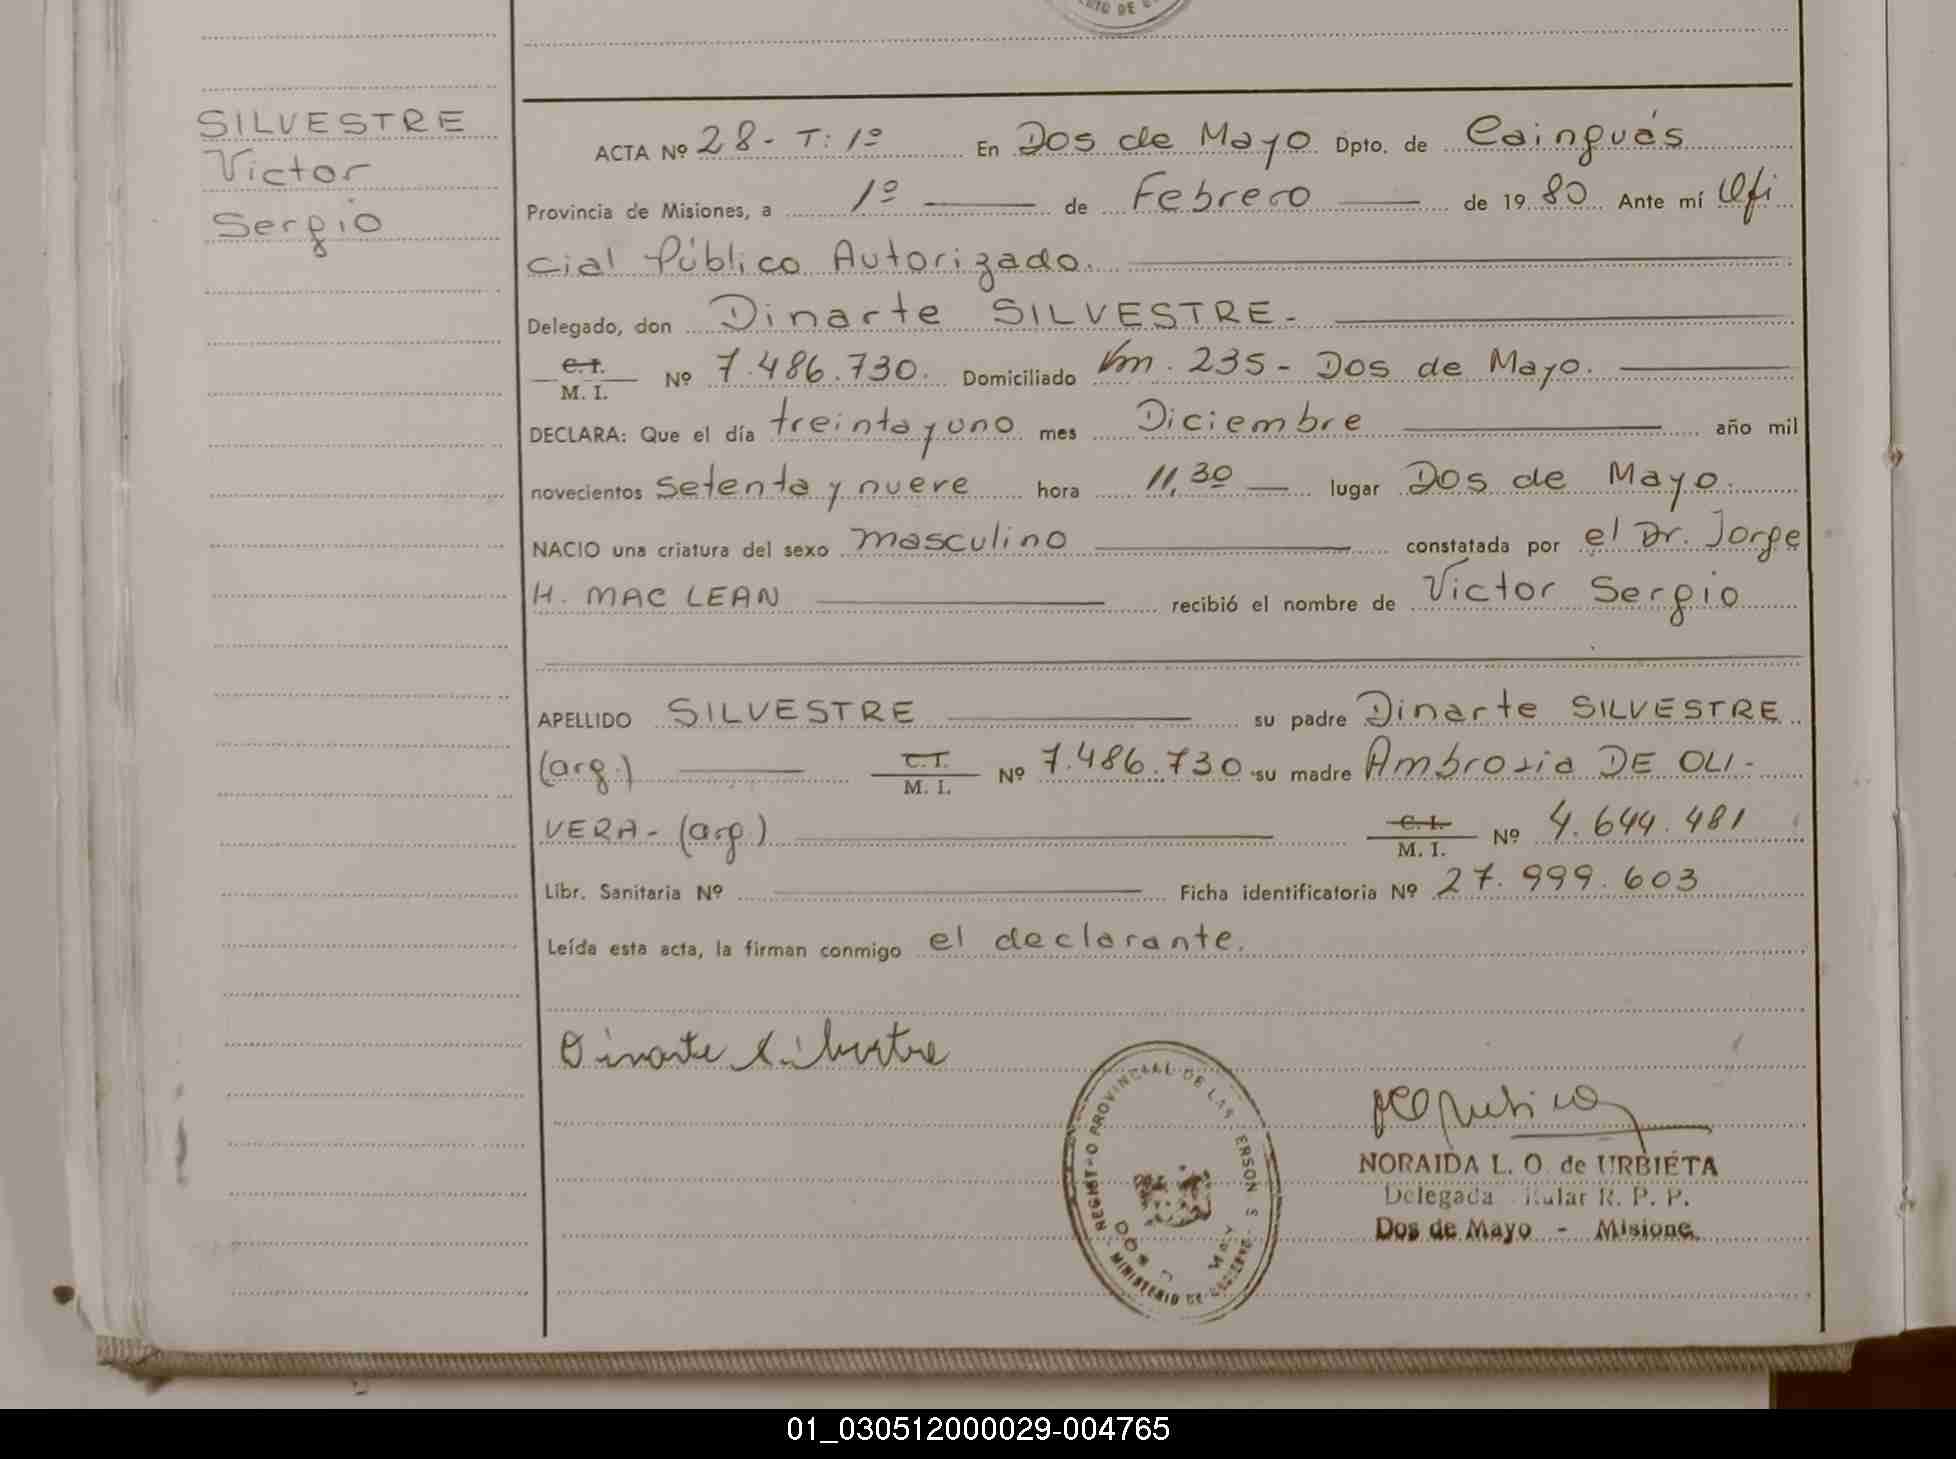 RIO DE
SILVESTRE
Victor
Sergio
ACTA Nº 28 - T: 1º En Dos de Mayo Dpto. de Cainguás
Provincia de Misiones, a 1º de Febrero de 1980 Ante mí Ofi
cial Público Autorizado.
Delegado, don Dinarte SILVESTRE.-
C.I.
M. I. Nº 7.486.730. Domiciliado Km. 235 - Dos de Mayo.
DECLARA: Que el día treinta y uno mes Diciembre año mil
novecientos setenta y nueve hora 11,30 lugar Dos de Mayo.
NACIO una criatura del sexo masculino constatada por el Dr. Jorge
H. MAC LEAN recibió el nombre de Victor Sergio
APELLIDO SILVESTRE su padre Dinarte SILVESTRE
(arg.) C.I. M. I. Nº 7.486.730 su madre Ambrosia DE OLI-
VERA - (arg.) C. I. M. I. Nº 4.644.481
Libr. Sanitaria Nº Ficha identificatoria Nº 27.999.603
Leída esta acta, la firman conmigo el declarante.
Dinarte Silvestre
REGISTRO PROVINCIAL DE LAS PERSONAS
DOS DE MAYO
MINISTERIO DE GOBIERNO
NORAIDA L. O. de URBIETA
Delegada Titular R. P. P.
Dos de Mayo - Misiones
01_030512000029-004765